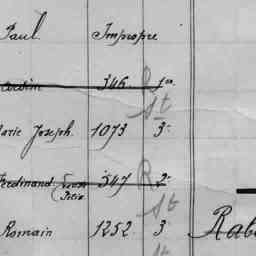 Paul. Impropre
346 1re
St
Marie Joseph. 1073 3e
Ferdinand 347 R 2e
St
Romain 1252 3 Rab
St